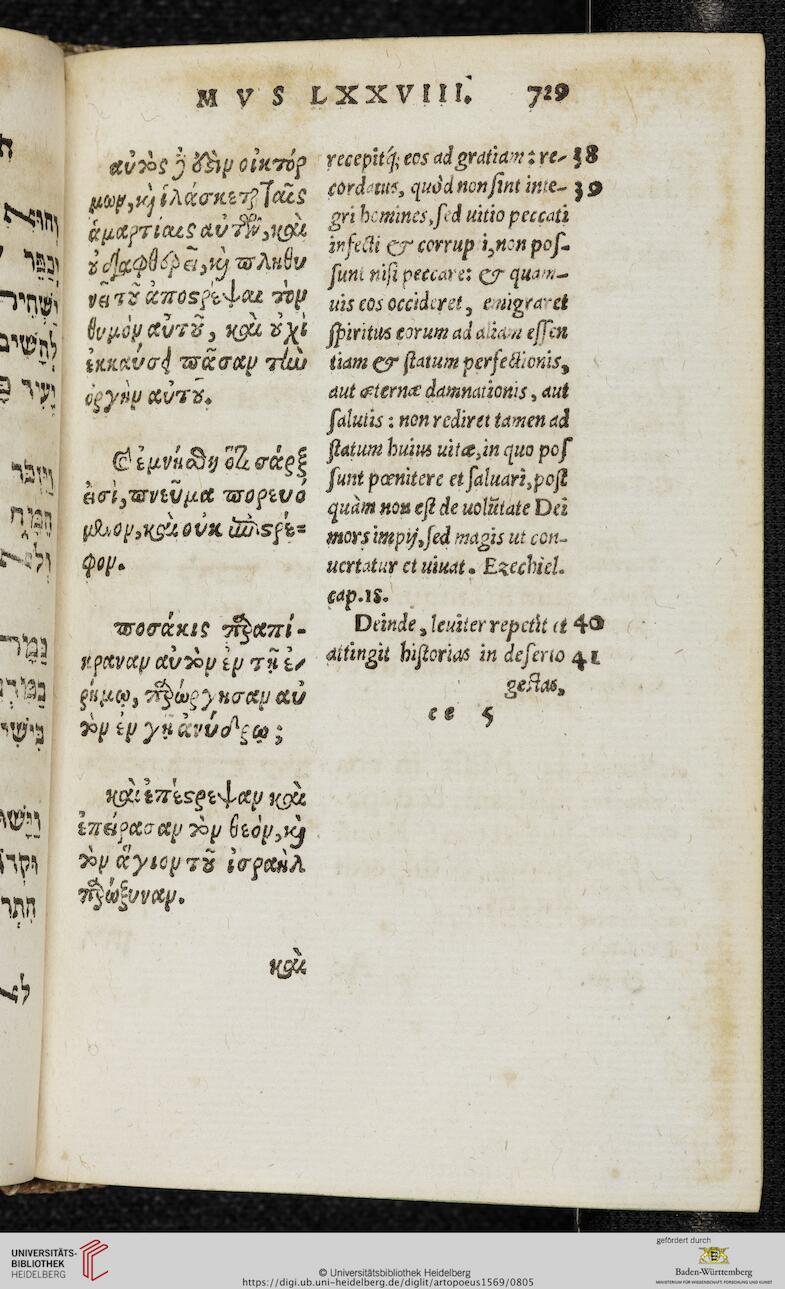 MVS LXXVIII. 729
αὐτὸς δέ ἐϛιν οἰκτίρ
μων, καὶ ἱλάσκεται ταῖς
ἁμαρτίαις αὐτῶν, καὶ
οὐ διαφθερεῖ, καὶ πληθυ
νεῖ τοῦ ἀποϛρέψαι τὸν
θυμὸν αὐτοῦ, καὶ οὐχὶ
ἐκκαύσει πᾶσαν τὴν
ὀργὴν αὐτοῦ.
Ἐμνήσθη ὅτι σάρξ
εἰσι, πνεῦμα πορευό
μενον, καὶ οὐκ ἐπιϛρέ=
φον.
ποσάκις παραπί-
κραναν αὐτὸν ἐν τῇ ἐ-
ρήμῳ, παρώργησαν αὐ
τὸν ἐν γῇ ἀνύδρῳ;
καὶ ἐπέϛρεψαν καὶ
ἐπείρασαν τὸν θεόν, καὶ
τὸν ἅγιον τοῦ ἰσραὴλ
παρώξυναν.
καὶ
recepitq́; eos ad gratiam: re- 38
cordatus, quòd non sint inte- 39
gri homines, sed uitio peccati
infecti & corrupti, non pos-
sunt nisi peccare: & quam-
uis eos occideret, emigraret
spiritus eorum ad aliam essen
tiam & statum perfectionis,
aut æternæ damnationis, aut
salutis: non rediret tamen ad
statum huius uitæ, in quo pos
sunt pœnitere et saluari, post
quàm non est de uolũtate Dei
mors impij, sed magis ut con-
uertatur et uiuat. Ezechiel.
cap. 18.
Deinde, leuiter repetit et 40
attingit historias in deserto 41
gestas,
ee 5
UNIVERSITÄTS-
BIBLIOTHEK
HEIDELBERG
© Universitätsbibliothek Heidelberg
https://digi.ub.uni-heidelberg.de/diglit/artopoeus1569/0805
gefördert durch
Baden-Württemberg
MINISTERIUM FÜR WISSENSCHAFT, FORSCHUNG UND KUNST